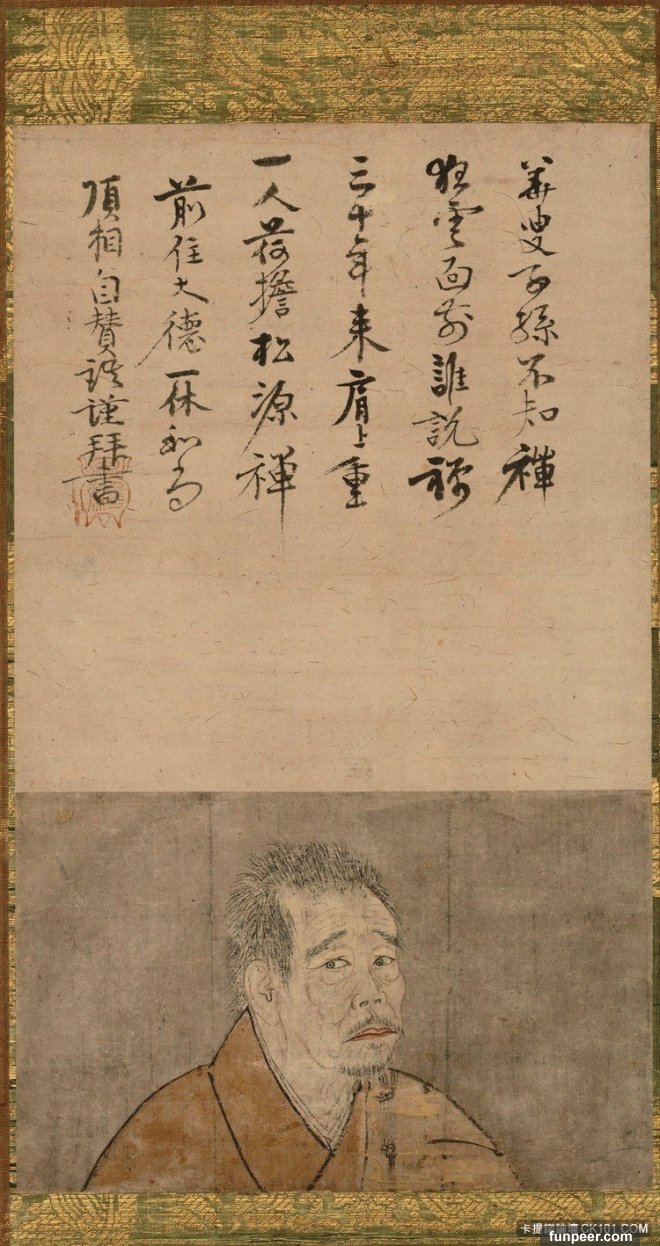 華叟子孫不知禅
狂雲面前誰説禅
三十年来肩上重
一人荷擔松源禅
前住大德一休和尚
頂相自賛語謹拜書
卡提諾論壇 CK101.COM
funpeer.com